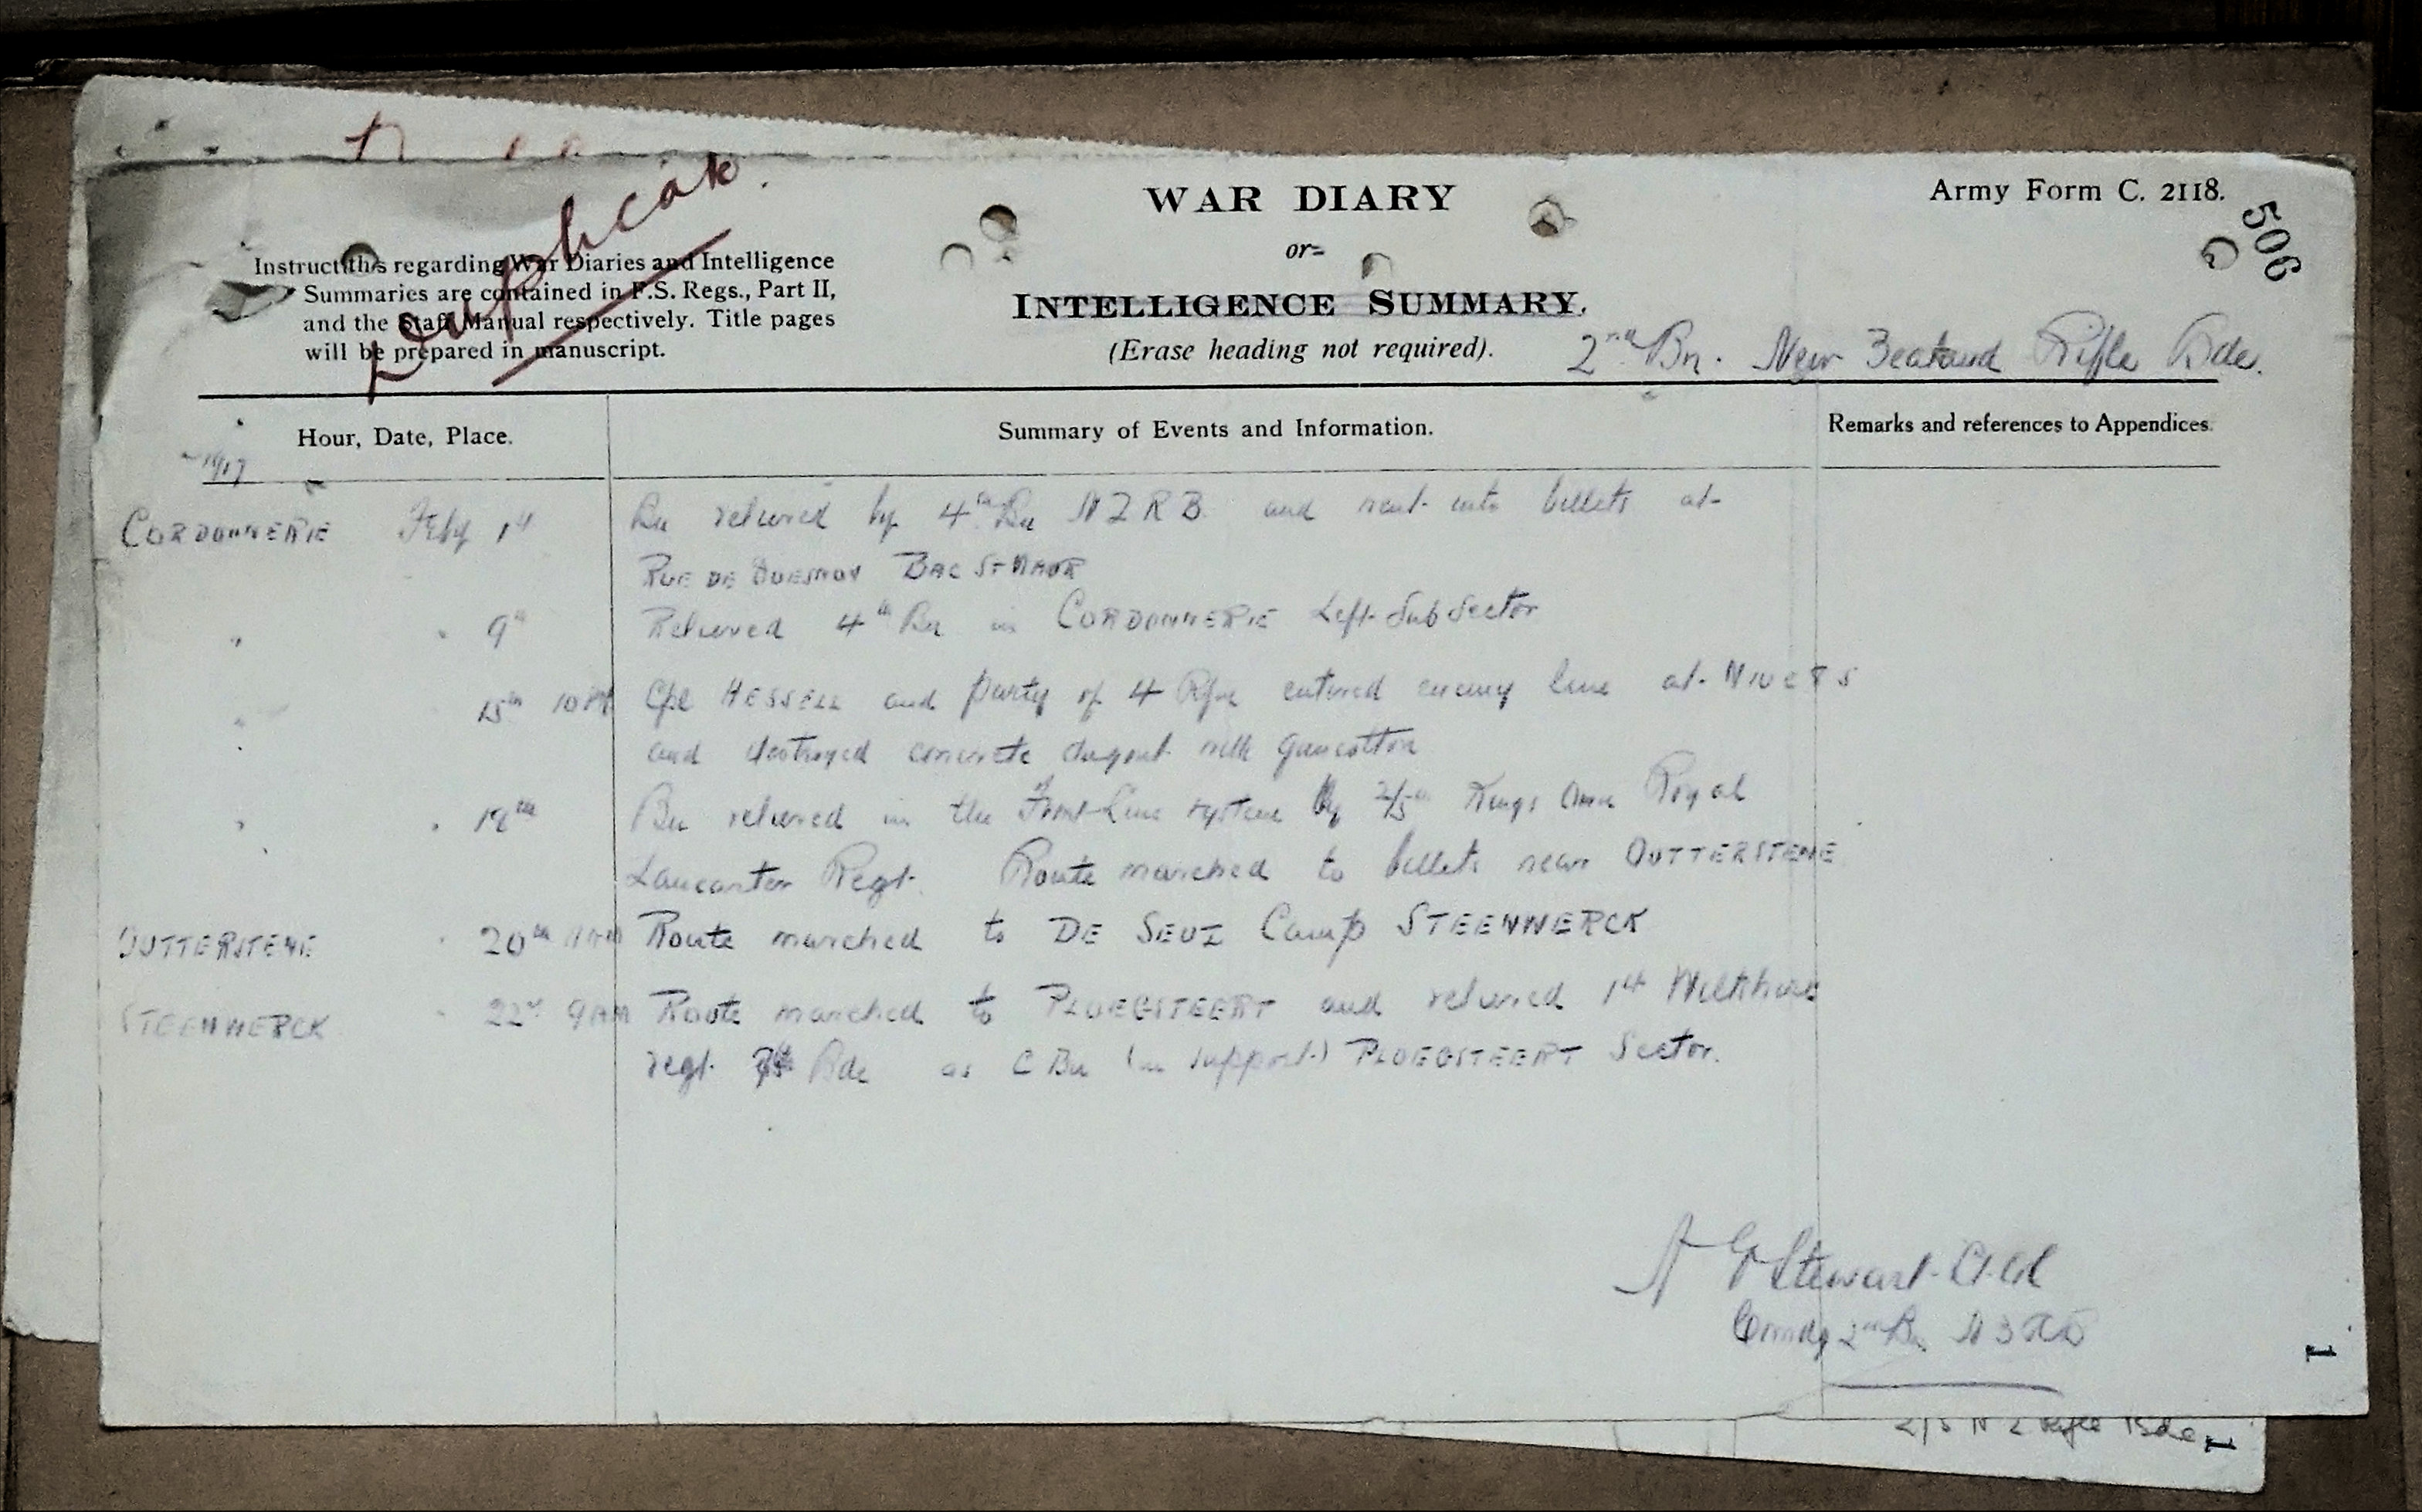 Duplicate.
WAR DIARY
or
INTELLIGENCE SUMMARY.
(Erase heading not required).
Army Form C. 2118.
506
Instructions regarding War Diaries and Intelligence
Summaries are contained in F.S. Regs., Part II,
and the Staff Manual respectively. Title pages
will be prepared in manuscript.
2nd Bn. New Zealand Rifle Bde.
Hour, Date, Place.
Summary of Events and Information.
Remarks and references to Appendices.
1917
CORDONNERIE Feby 1st Bn relieved by 4th Bn N Z R B. and went into billets at
RUE DE QUESNOY BAC ST MAUR
" " 9th Relieved 4th Bn in CORDONNERIE Left Sub Sector
" 15th 10 PM Cpl HESSELL and party of 4 Rfn entered enemy line at N 10 c 8 5
and destroyed concrete dugout with guncotton
" " 18th Bn relieved in the Front Line system by 2/5th Kings Own Royal
Lancaster Regt. Route marched to billets near OUTTERSTENE
OUTTERSTENE " 20th Route marched to DE SEUL Camp STEENWERCK
STEENWERCK " 22nd 9 AM Route marched to PLOEGSTEERT and relieved 1st Wiltshire
regt 7th Bde as C Bn (in support) PLOEGSTEERT Sector.
Stewart Lt Col
Comdg 2nd Bn N Z R B
1
N Z Rifle Bde
1